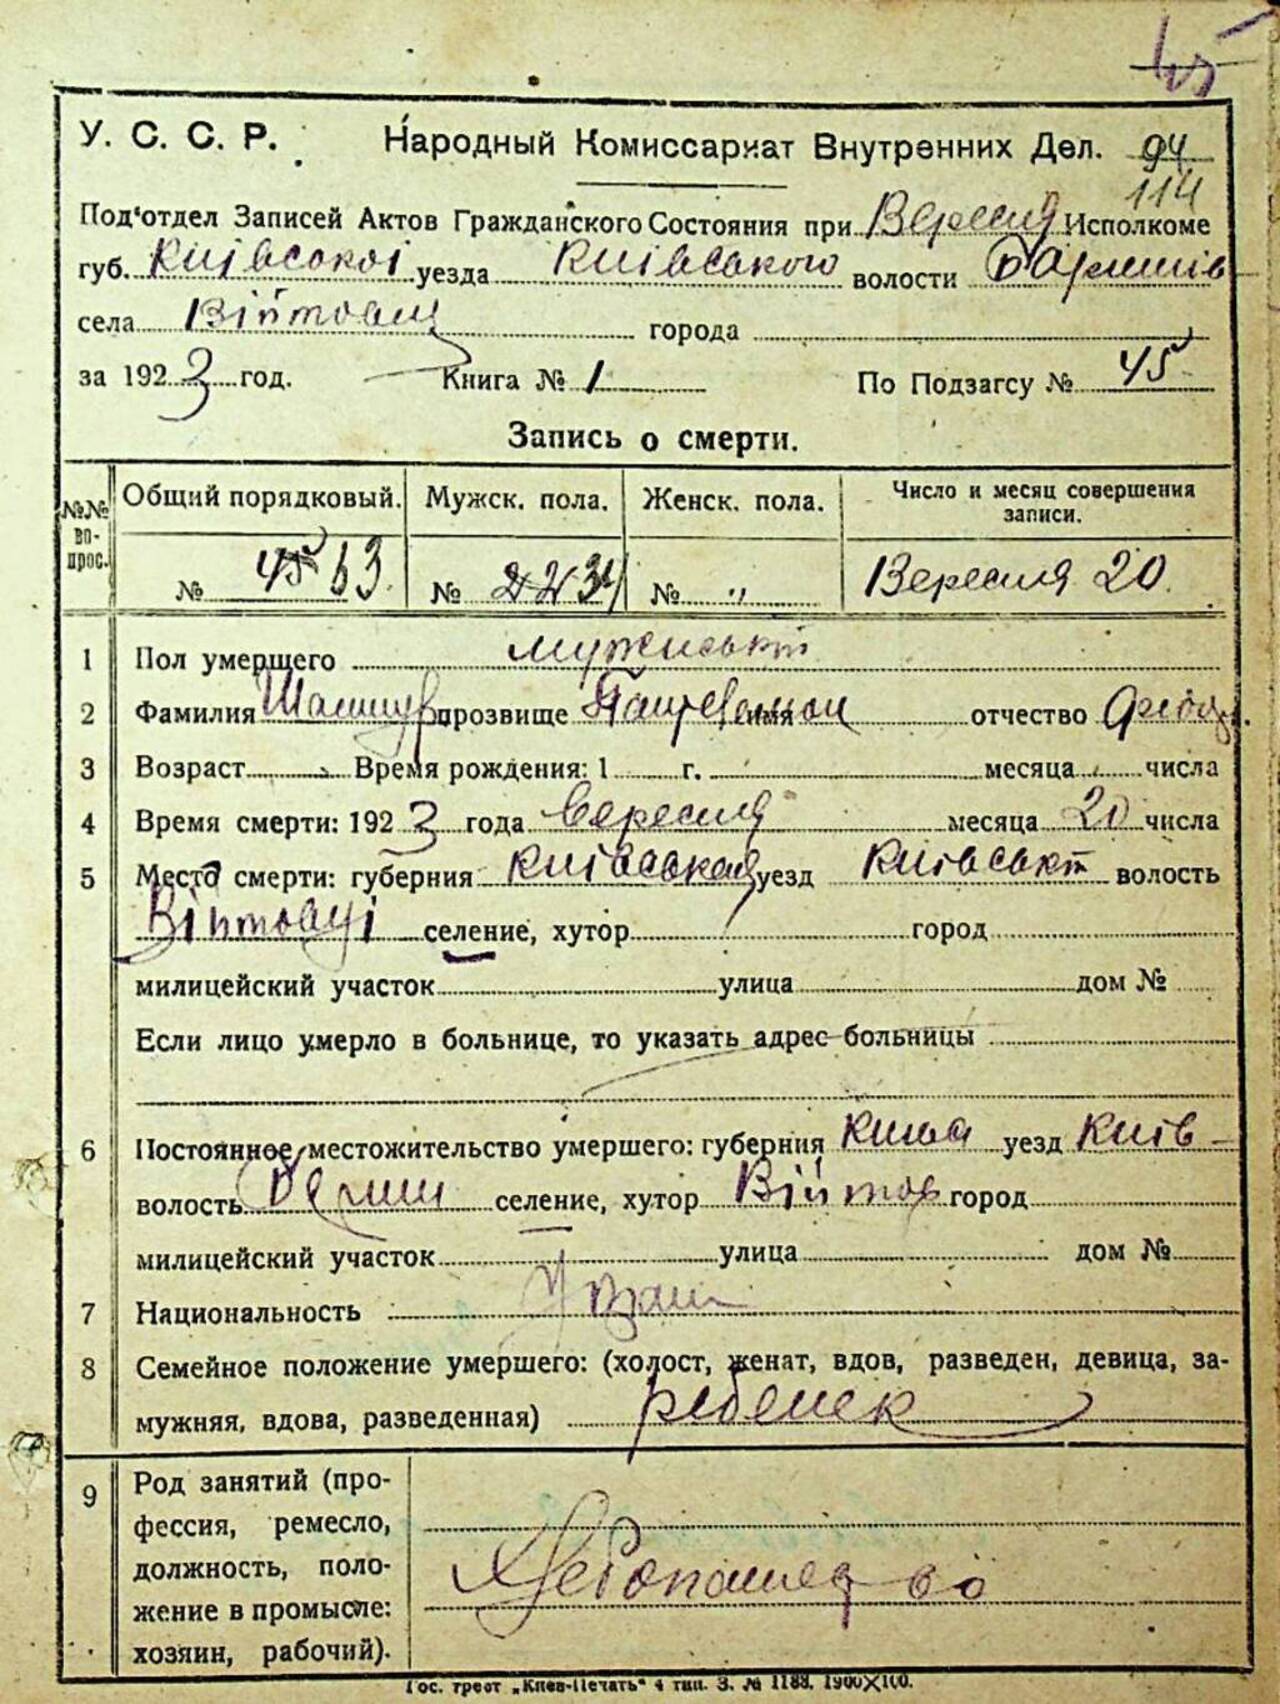 45
У. С. С. Р. Народный Комиссариат Внутренних Дел. 94
114
Под'отдел Записей Актов Гражданского Состояния при Вересня Исполкоме
губ. Київської уезда Київського волости Баришів
села Війтовці города
за 1923 год. Книга № 1 По Подзагсу № 45
Запись о смерти.
№№ во- прос. Общий порядковый. Мужск. пола. Женск. пола. Число и месяц совершения записи.
№ 45 63. № 22 34 № " Вересня 20.
1 Пол умершего мужеський
2 Фамилия прозвище имя отчество
3 Возраст Время рождения: 1 г. месяца числа
4 Время смерти: 1923 года вересня месяца 20 числа
5 Место смерти: губерния Київська уезд Київськ волость
Війтовці селение, хутор город
милицейский участок улица дом №
Если лицо умерло в больнице, то указать адрес больницы
6 Постоянное местожительство умершего: губерния уезд Київ
волость Бариш селение, хутор Війтов город
милицейский участок улица дом №
7 Национальность
8 Семейное положение умершего: (холост, женат, вдов, разведен, девица, за-
мужняя, вдова, разведенная) ребенек
9 Род занятий (про-
фессия, ремесло,
должность, поло-
жение в промысле:
хозяин, рабочий).
Хлебопашество
Гос. трест „Киев-Печать" 4 тип. З. № 1188. 1900×100.